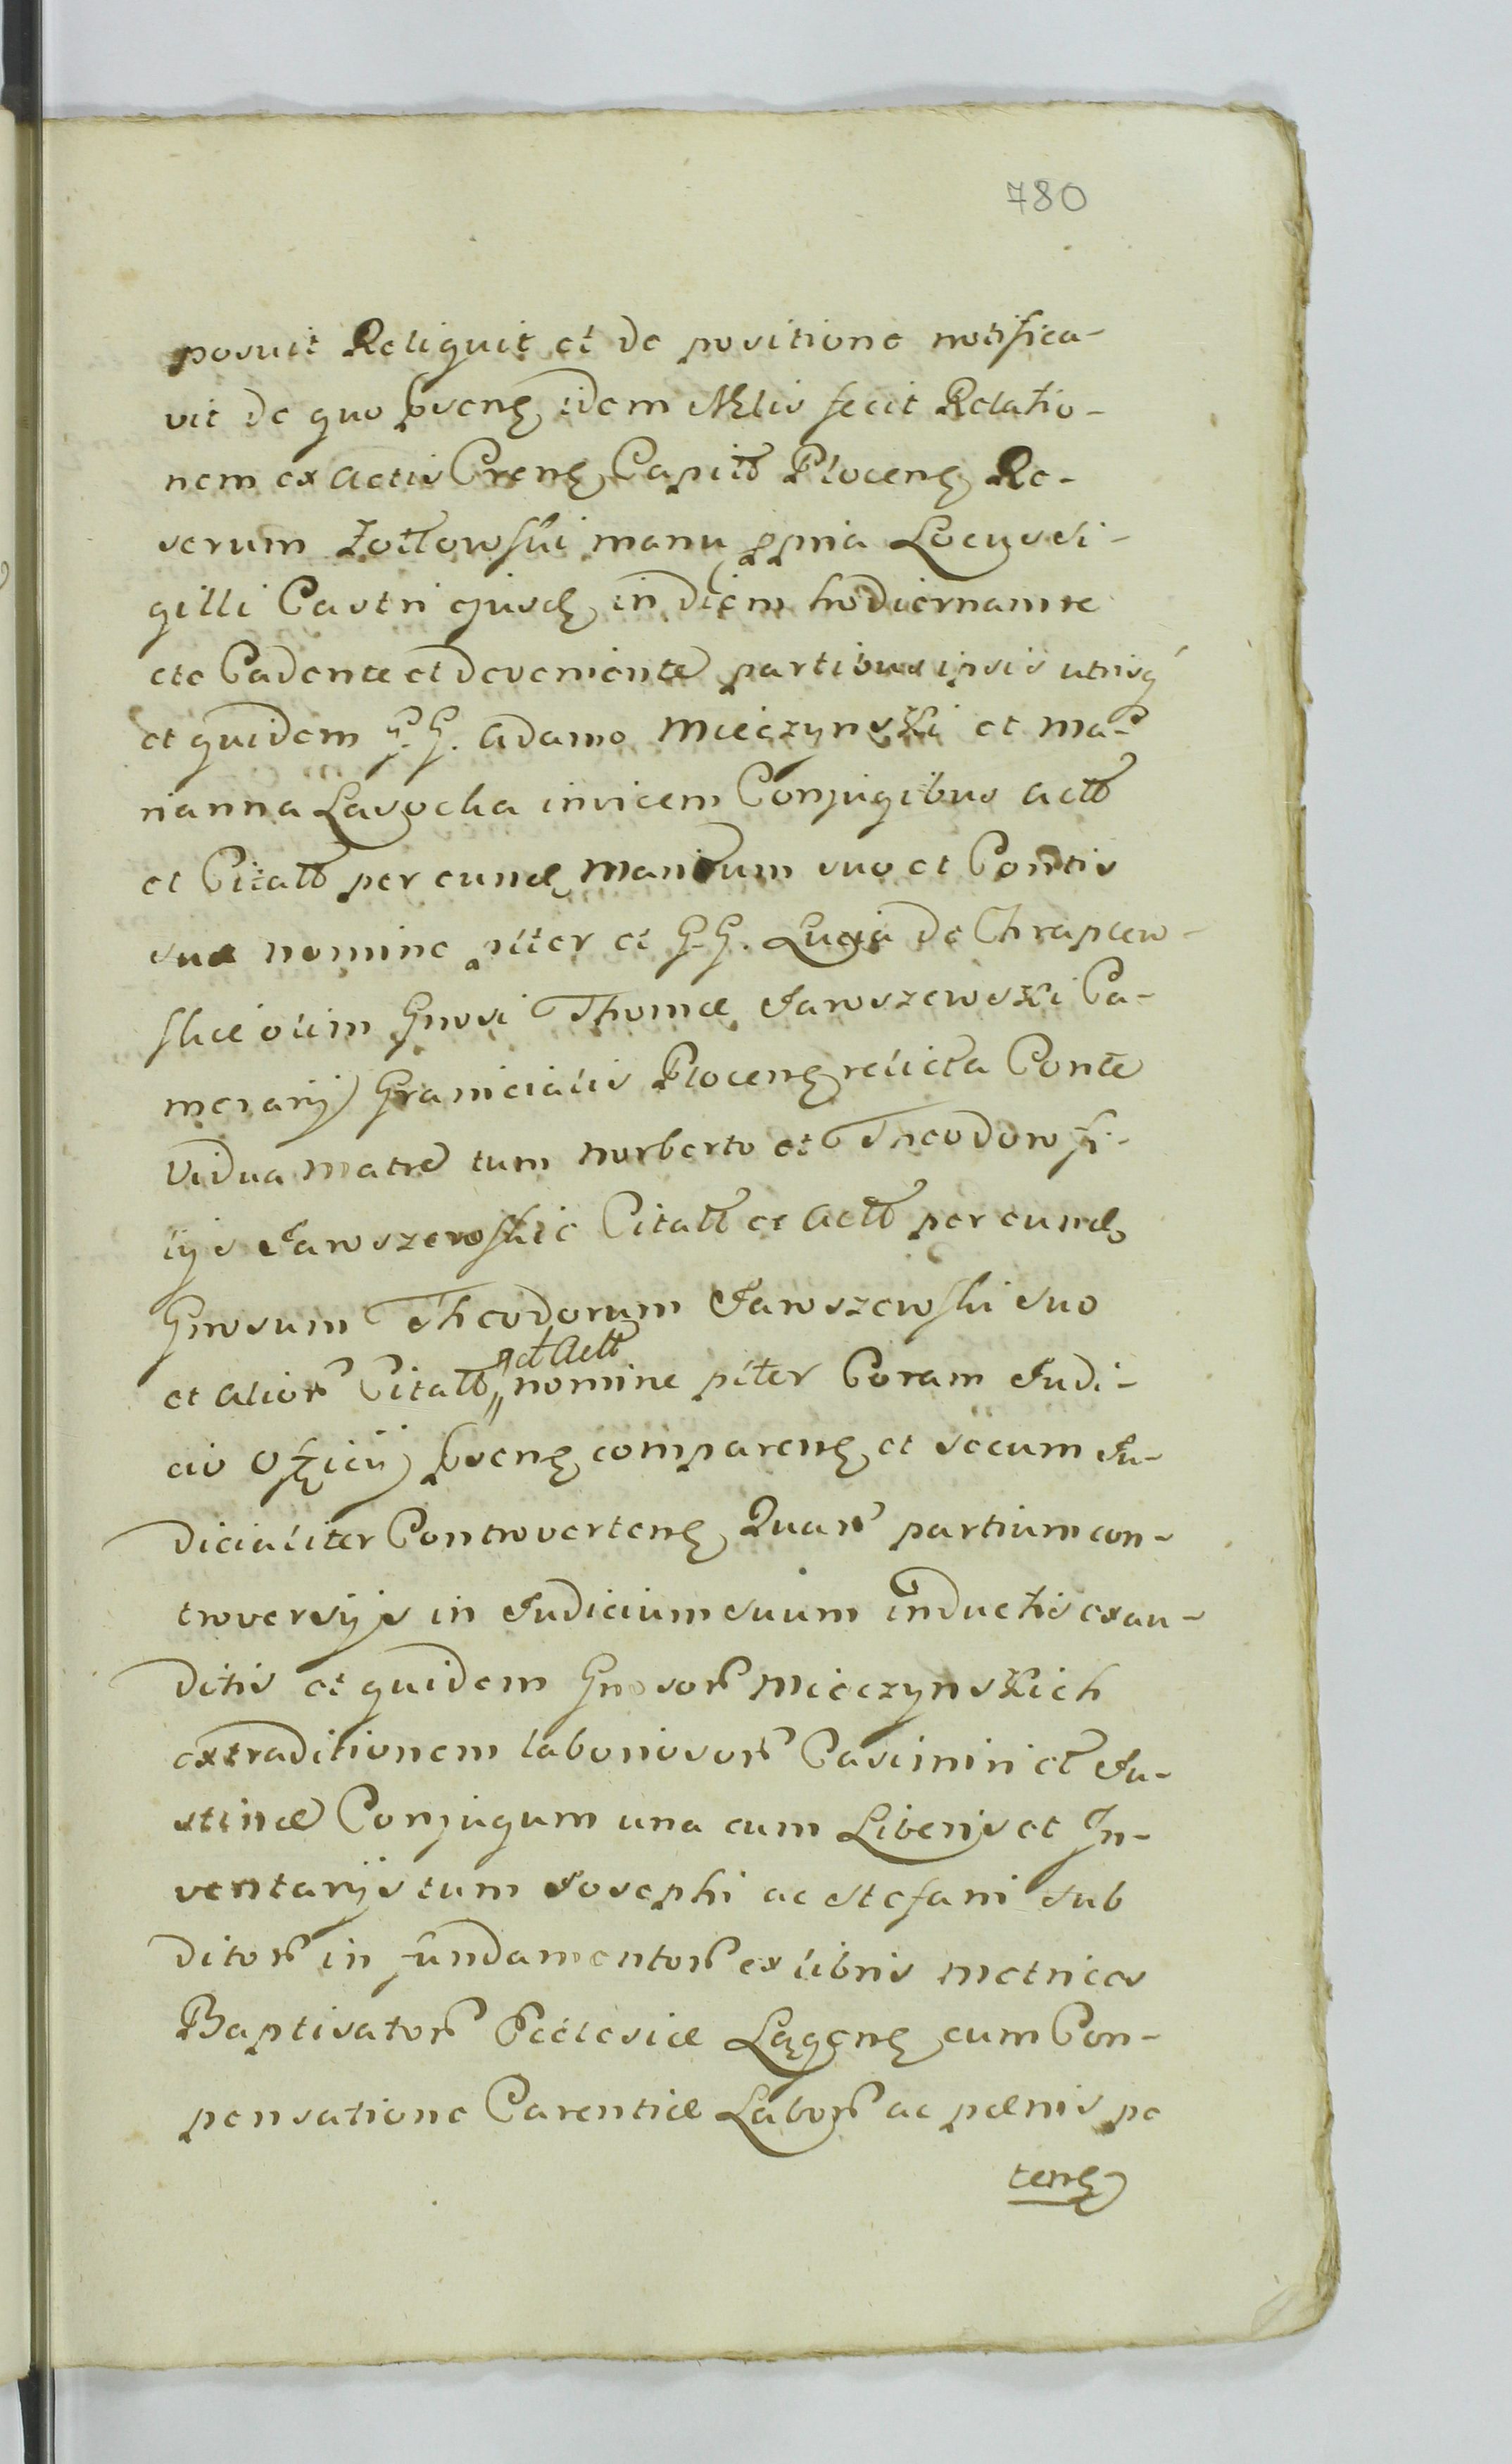 780
posuit Reliquit et de positione notifica-
vit de quo psens idem Mlis fecit Relatio-
nem ex Actis Crens Capitt Plocens Re-
serum Zołłowski manu ppria Locus Si-
gilli Castri ejusd in diem hodiernam re
etc Cadente et deveniente partibus ipsis utrisq
et quidem G. G. Adamo Mieczynski et Ma-
rianna Lasocka invicem Conjugibus Actt
et Citatt per eund Maritum suo et Contis
suæ nomine pster et G. G. Lucia de Chraplew-
skie olim Gnrosi Thomæ Jaroszewski Ca-
merarij Granicialis Plocens relicta Conte
Vidua Matre tum Norberto et Theodoro fi-
lijs Jaroszewskie Citatt et Actt per eund
Gnrosum Theodorum Jaroszewski suo
et alior Citatt et Actt nomine pster Coram Judi-
cio Officij psens comparens et secum Ju-
dicialiter Controvertens Quar partium con-
troversijs in Judicium suum inductis exau-
ditis et quidem Gnrosor Mieczynskich
extraditionem laboriosor Casimiri et Ju-
stinæ Conjugum una cum Liberis et In-
ventarijs tum Josephi ac Stefani sub
ditor in fundamentor ex libris metrices
Baptisator Ecclesiæ Lęgens cum Con-
pensatione Carentiæ Labor ac pænis pe
tens